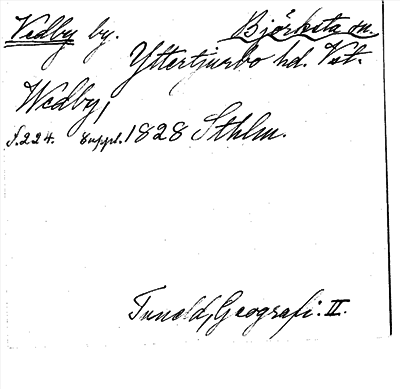 Vedby by. Björksta sn.
Yttertjurbo hd. Vst.
Wedby,
s. 224. Suppl. 1828 Sthlm.
Tuneld, Geografi. II.